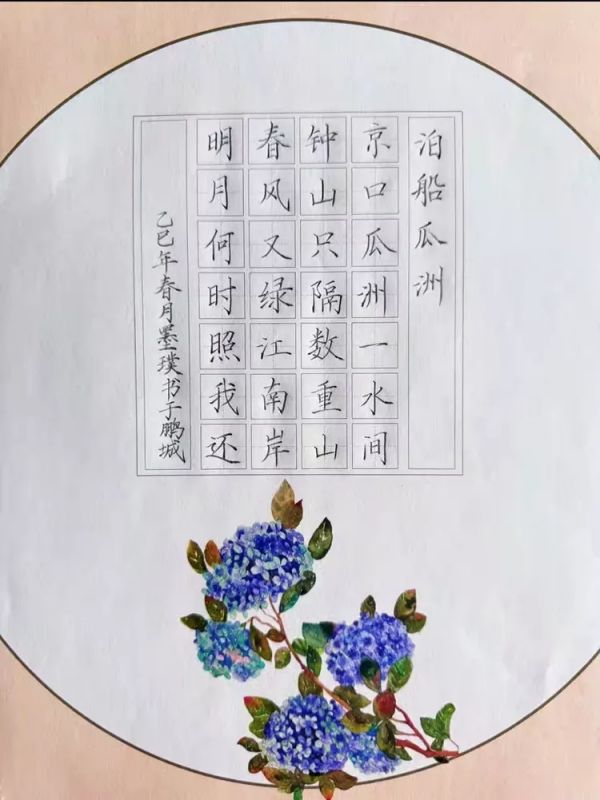 泊船瓜洲
京口瓜洲一水间
钟山只隔数重山
春风又绿江南岸
明月何时照我还
乙巳年春月墨璞书于鹏城